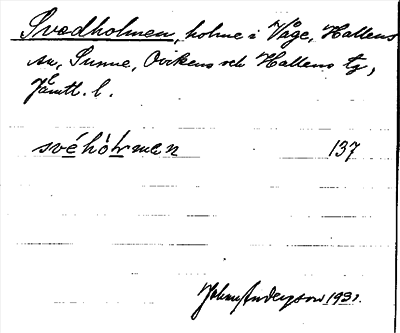 Svedholmen, holme i Våge, Hallens
sn, Sunne, Ovikens och Hallens tg,
Jämtl. l.
svéhòɫmen 137
John Anderson 1931.